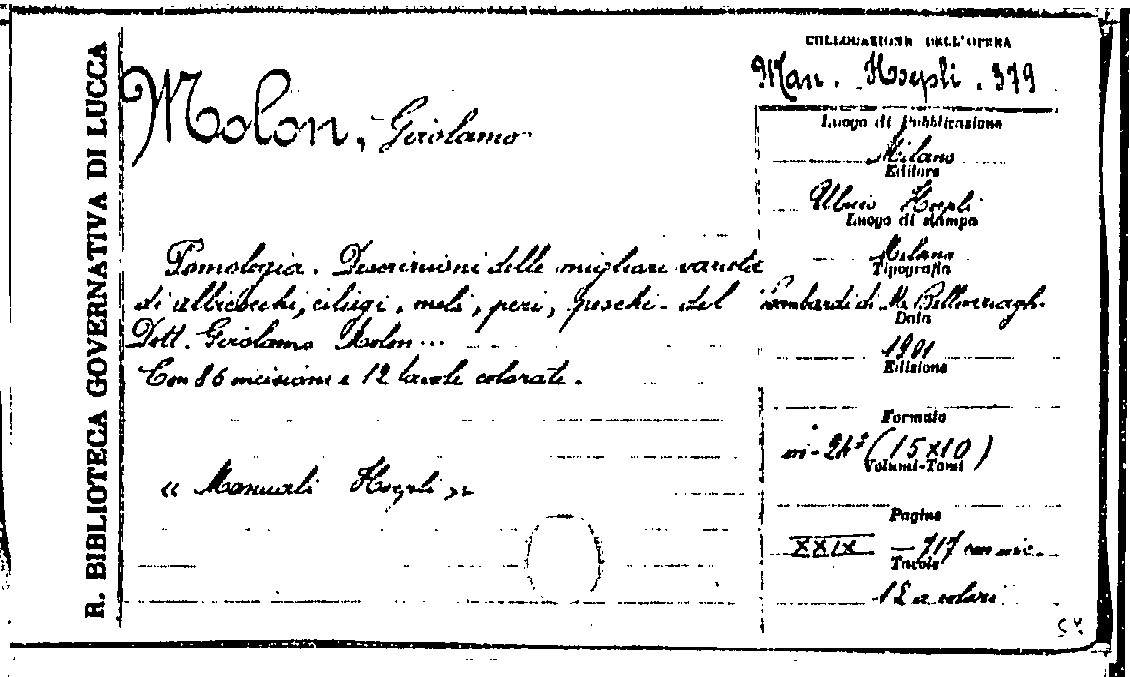 R. BIBLIOTECA GOVERNATIVA DI LUCCA
Molon, Girolamo
Pomologia. Descrizioni delle migliori varietà
di albicocchi, ciliegi, meli, peri, peschi. del
Dott. Girolamo Molon...
Con 86 incisioni e 12 tavole colorate.
« Manuali Hoepli »
COLLOCAZIONE DELL'OPERA
Man. Hoepli. 379
Luogo di Pubblicazione
Milano
Editore
Ulrico Hoepli
Luogo di stampa
Milano
Tipografia
Lombardi di M. Bellinzagh.
Data
1901
Edizione
Formato
in-24° (15x10)
Volumi-Tomi
Pagine
XXIX - 717 con inc.
Tavole
12 a colori